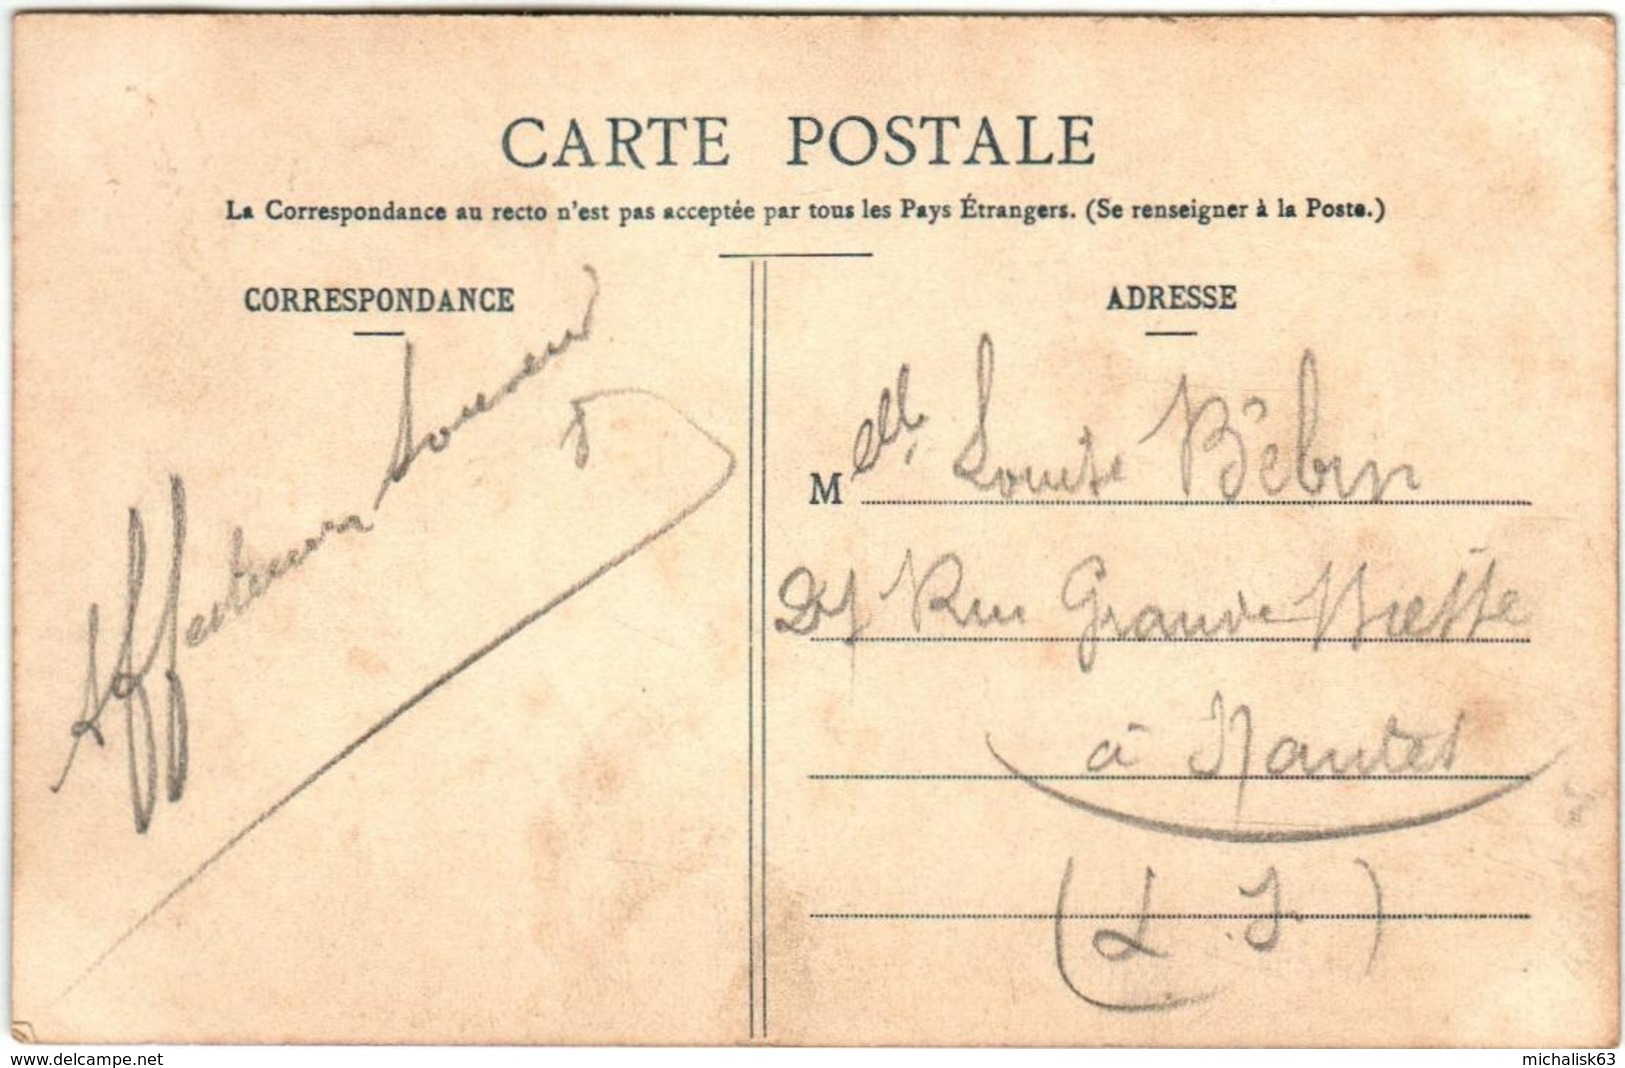 CARTE POSTALE
La Correspondance au recto n'est pas acceptée par tous les Pays Étrangers. (Se renseigner à la Poste.)
CORRESPONDANCE
Affectueux souvenir
ADRESSE
Melle Louise Bébin
Rue Grande Biesse
à Nantes
(L. I.)
www.delcampe.net
michalisk63